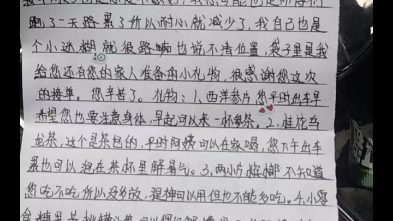 啊了一天路累了所以耐心就减少了,我自己也是
个小迷糊就很路痴也说不清位置 袋子里是我
给您还有您的家人准备的小礼物,很感谢您这次
的接单。您辛苦了。礼物:1、西洋参片,您平时出车早
希望您也要注意身体,早起可以来一杯参茶。2.桂花乌
龙茶,这个是茶包的,平时阿姨可以在家喝,您下午出车
累也可以泡在茶杯里解累乏。3.两小片槟榔不知道
您吃不吃所以没多放,提神可以用但也不能多吃。4.小零
食